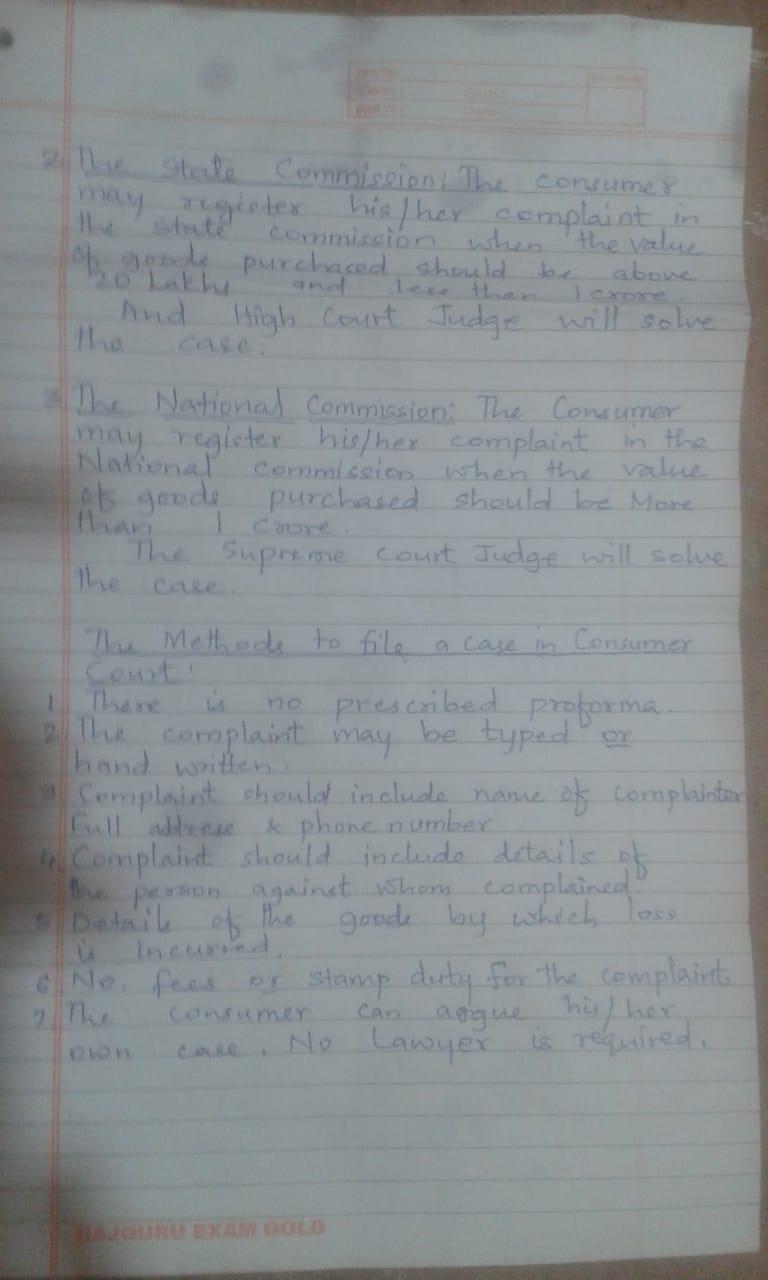 2 The State Commission: The consumer
may register his/her complaint in
the state commission when the value
of goods purchased should be above
20 Lakhs and less than 1 crore.
And High Court Judge will solve
the case.
3 The National Commission: The Consumer
may register his/her complaint in the
National commission when the value
of goods purchased should be More
than 1 crore.
The Supreme court Judge will solve
the case.
The Methods to file a case in Consumer
Court:
1. There is no prescribed proforma.
2. The complaint may be typed or
hand written.
3 Complaint should include name of complainter
Full address & phone number
4. Complaint should include details of
the person against whom complained.
5 Details of the goods by which loss
is incurred.
6 No. fees or stamp duty for the complaint
7. The consumer can argue his/her
own case. No Lawyer is required.
RAJGURU EXAM GOLD